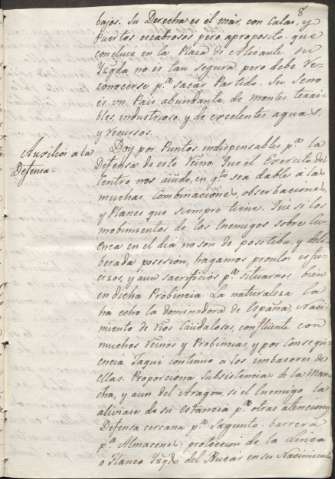 8
bajos. Su Derecha es el mar con Calas, y
Puertos escabrosos pero aproposito que
concluce en la Plaza de Alicante su
Yzqda no es tan segura pero debe re-
conocerse pa sacar Partido. Su Seno
es un Pais abundante de montes terri-
bles industrioso y de excelentes aguas
y recursos.
Auxilios a la
Defensa.
Doy por Puntos indispensables pa la
Defensa de este Reino. Que el Exercito del
Centro nos aiude, en qto sea dable a las
muchas Combinaciones, observaciones
y Planes que siempre tiene. Que si los
mobimientos de los Enemigos sobre Cu-
enca en el dia no son de positibo, y deli-
berada posesion, hagamos prontos esfu-
erzos, y aun sacrificios pa situarnos bien
en dicha Probincia. La naturaleza la
ha echo la dominadora de España, Naci-
miento de Rios Caudalosos, confluente con
muchos Reinos y Probincias, y por consequ-
encia Jaque continuo a los imbasores de
ellas. Proporciona subsistencia de la Man-
cha, y aun del Aragon si el Enemigo la
aliviase de su estancia pr otras atenciones
Defensa cercana pa Sagunto: barrera
pa Almacenes: proteccion de la Linea
o flanco Yzqdo del Jucar en su Nacimiento